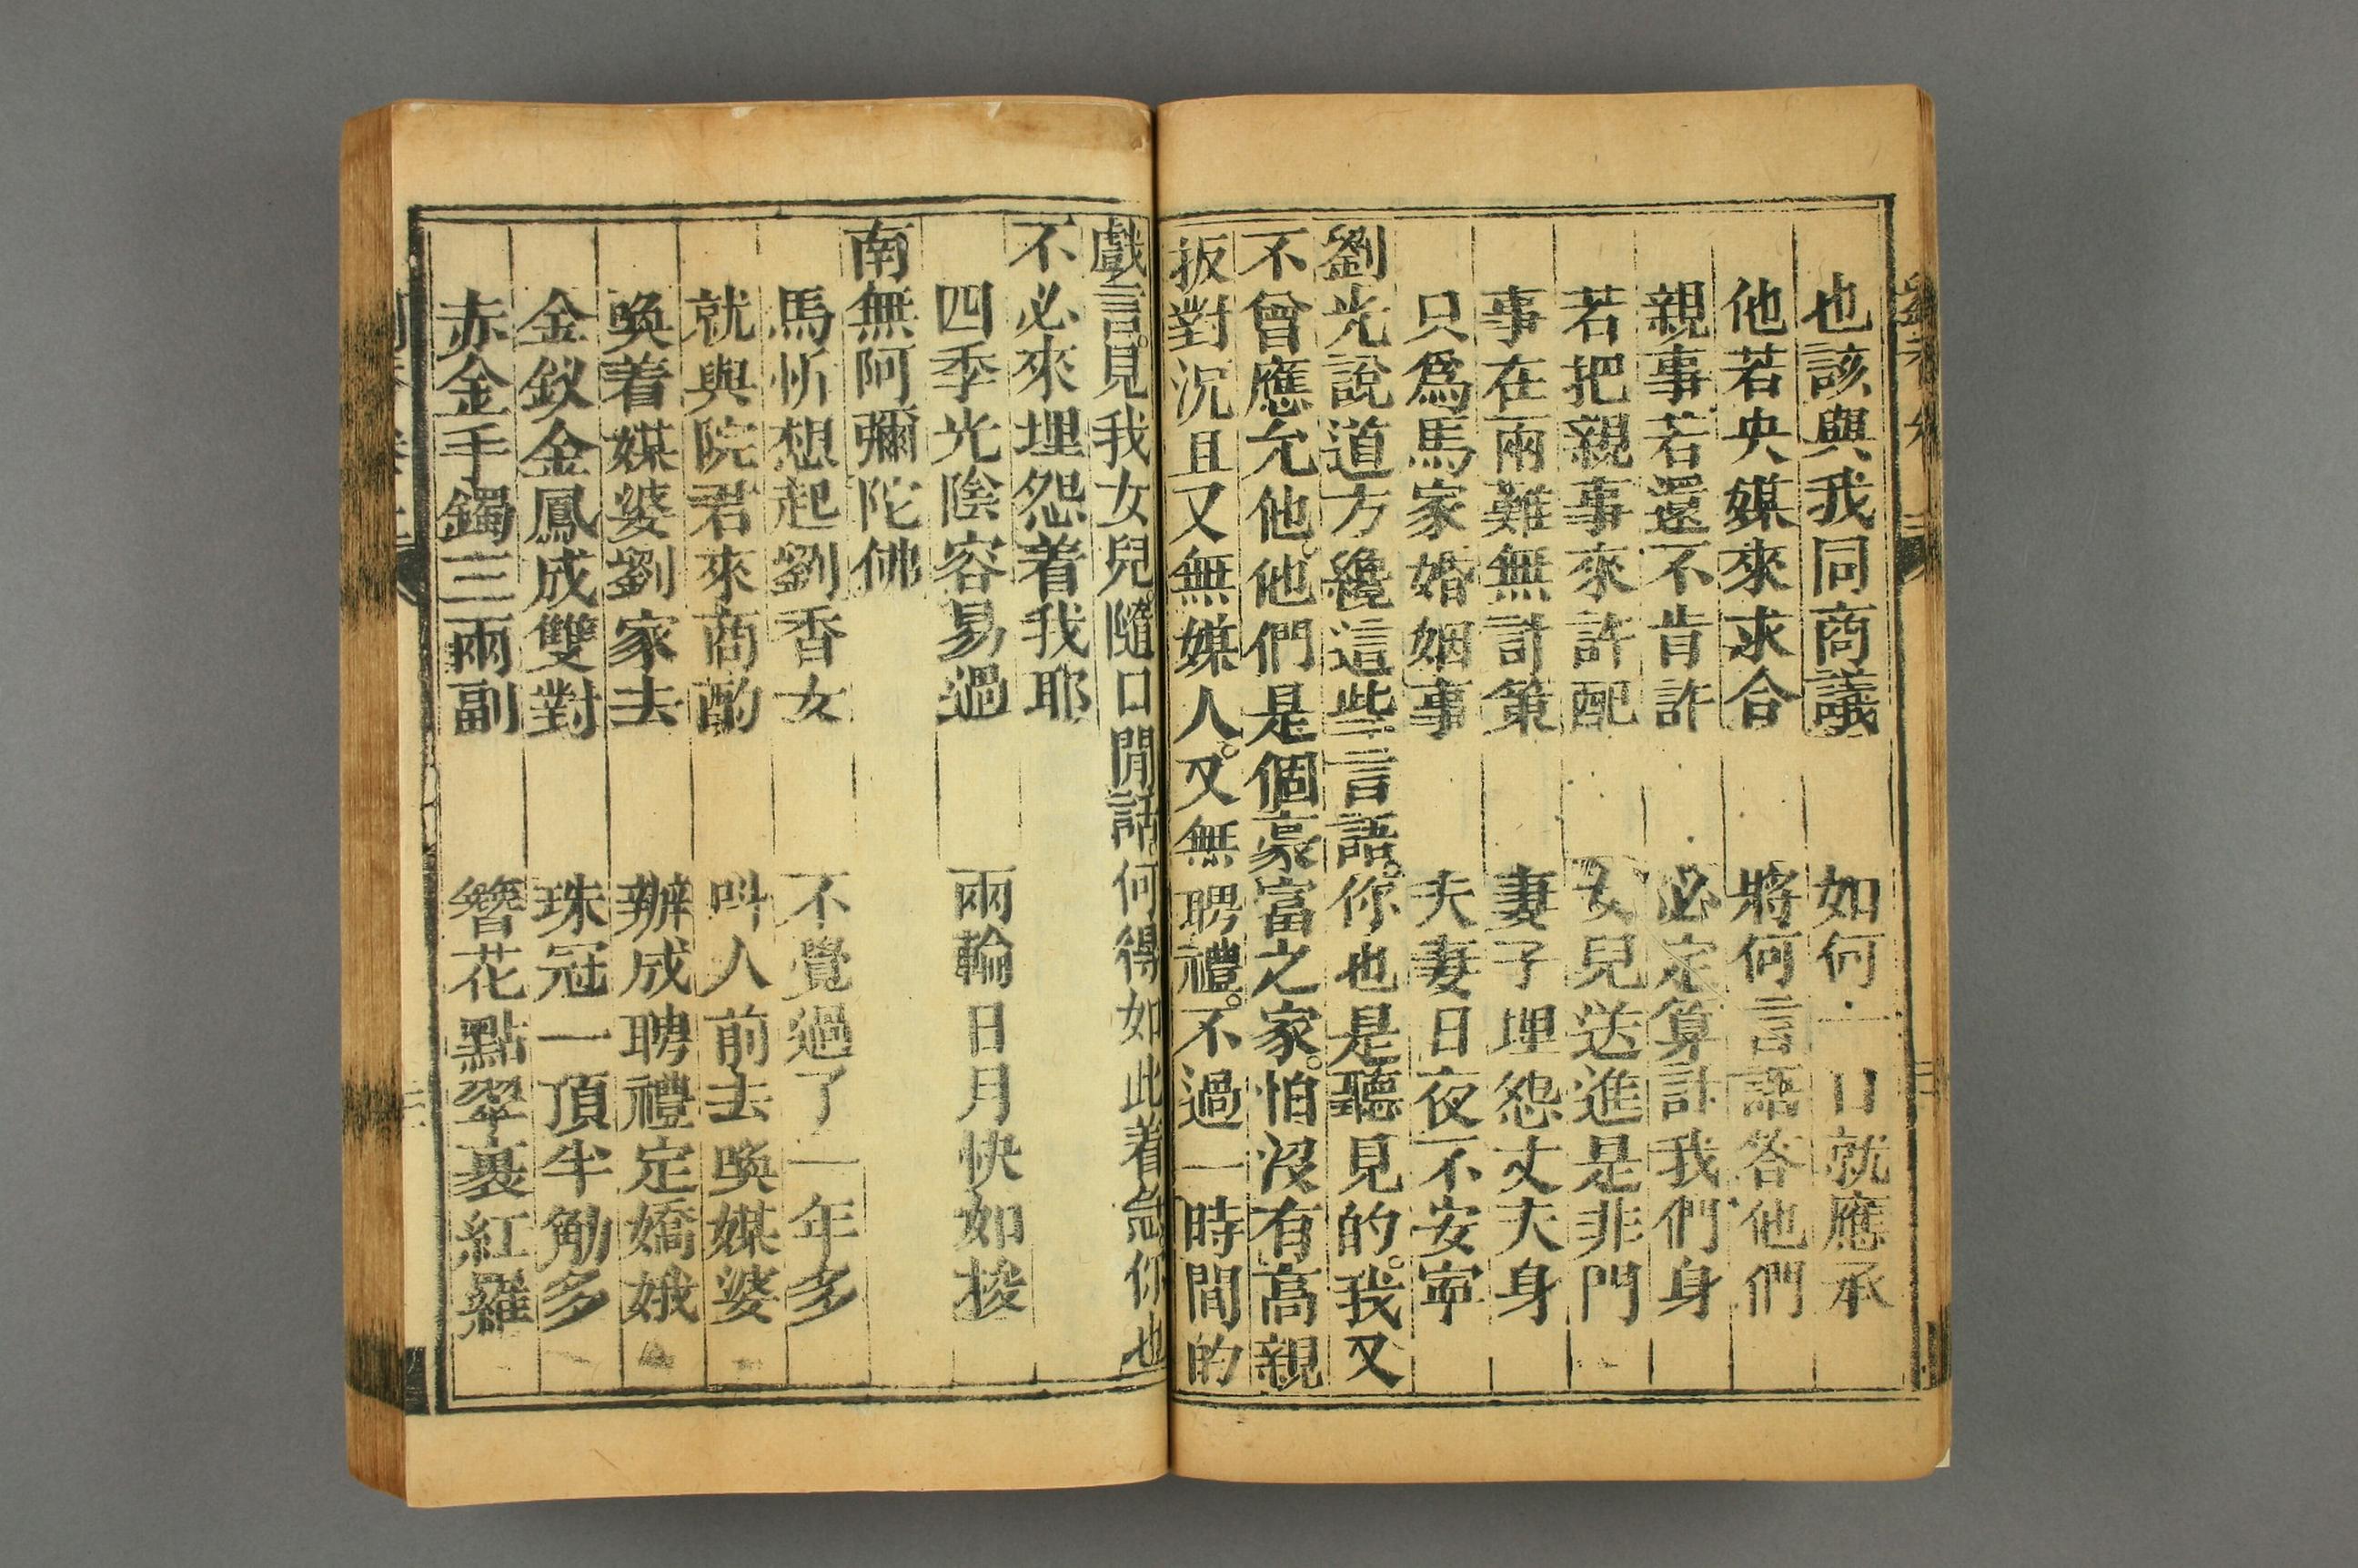 也該與我同商議　如何一口就應承
他若央媒來求合　將何言語答他們
親事若還不肯許　必定算計我們身
若把親事來許配　女兒送進是非門
事在兩難無計策　妻子埋怨丈夫身
只爲馬家婚姻事　夫妻日夜不安寧
劉光說道方纔這些言語。你也是聽見的。我又
不曾應允他。他們是個豪富之家。怕沒有高親
扳對沉且又無媒人。又無聘禮。不過一時間的
戲言。見我女兒。隨口閒話。何得如此着急你也
不必來埋怨着我耶
四季光陰容易過　兩輪日月快如梭
南無阿彌陀佛
馬忻想起劉香女　不覺過了一年多
就與院君來商酌　叫人前去喚媒婆
喚着媒婆劉家去　辦成聘禮定嬌娥
金釵金鳳成雙對　珠冠一頂半觔多
赤金手鐲三兩副　簪花點翠裹紅羅